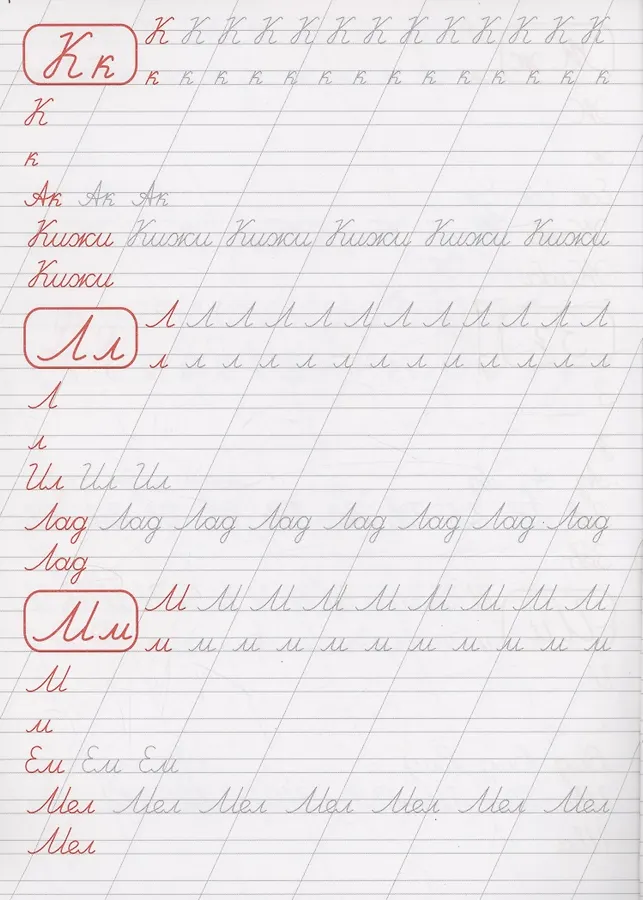 К к
К К К К К К К К К К К К К
к к к к к к к к к к к к к к
К
к
Ак Ак Ак
Кижи Кижи Кижи Кижи Кижи Кижи
Кижи
Л л
Л Л Л Л Л Л Л Л Л Л Л Л
л л л л л л л л л л л л л
Л
л
Ил Ил Ил
Лад Лад Лад Лад Лад Лад Лад Лад
Лад
М м
М М М М М М М М М
м м м м м м м м м м м
М
м
Ем Ем Ем
Мел Мел Мел Мел Мел Мел Мел
Мел